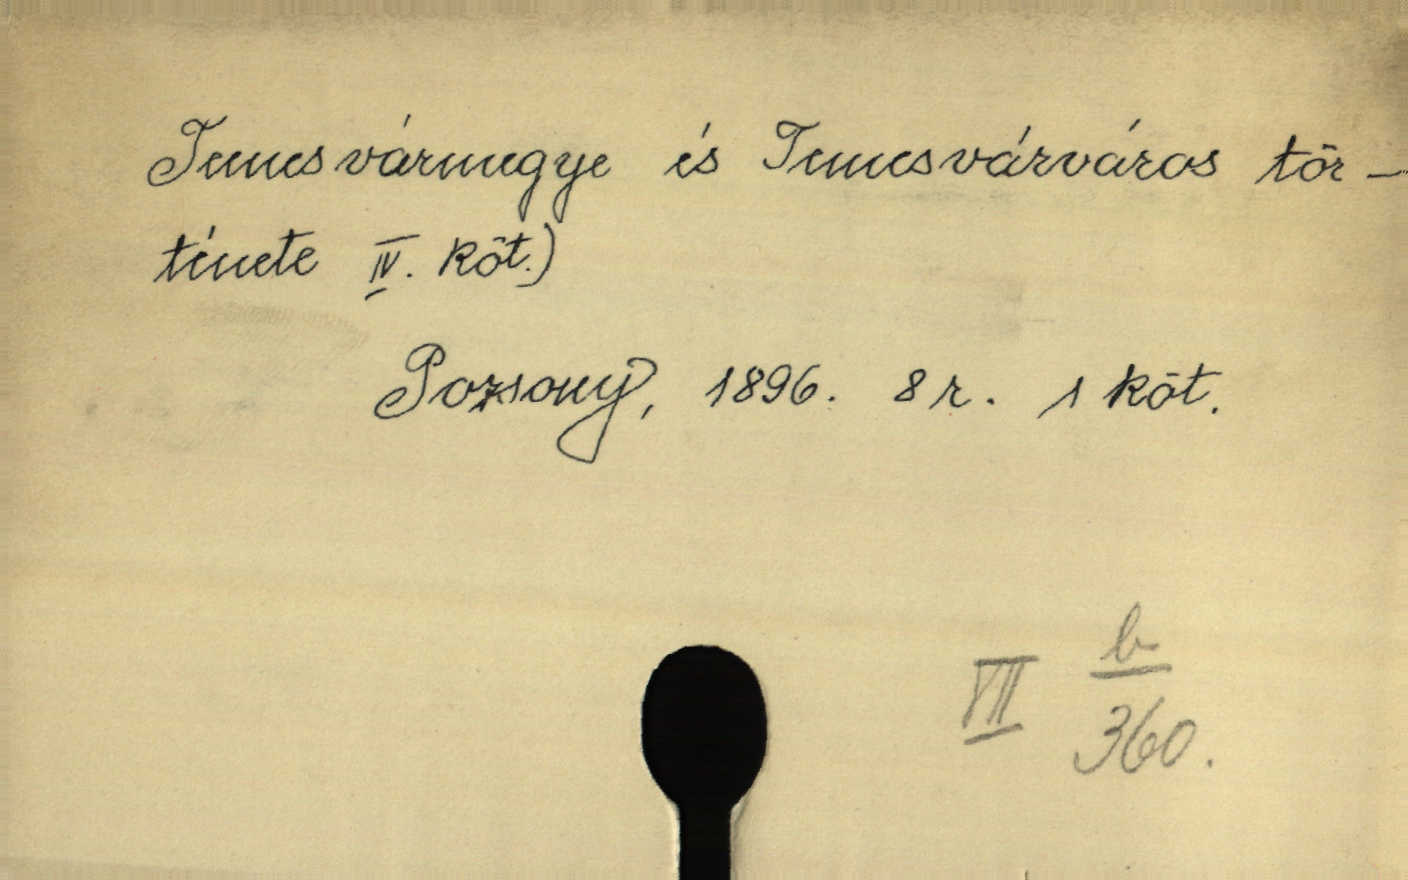 Temesvármegye és Temesvárváros tör-
ténete IV. köt.)
Pozsony, 1896. 8 r. 1 köt.
VII b/360.